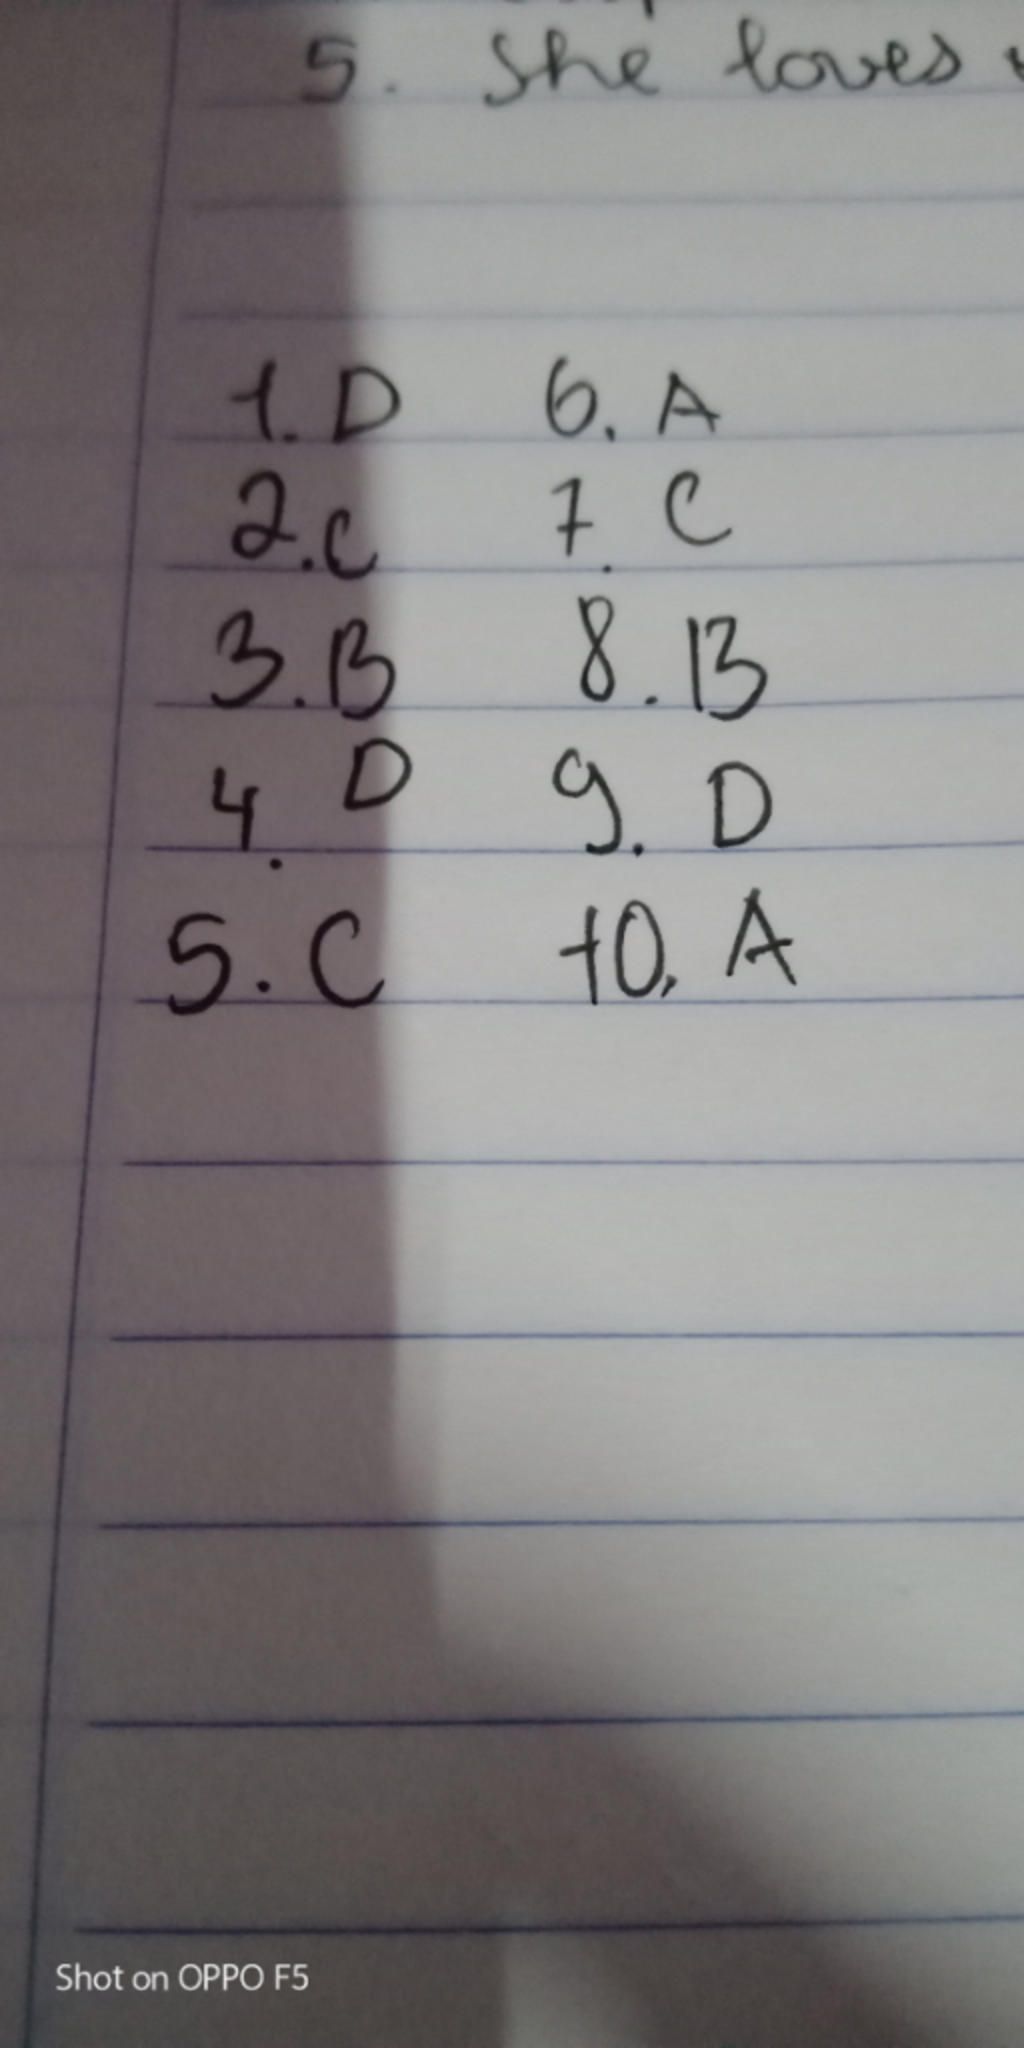 5. She loves
1. D 6. A
2. C 7. C
3. B 8. B
4. D 9. D
5. C 10. A
Shot on OPPO F5